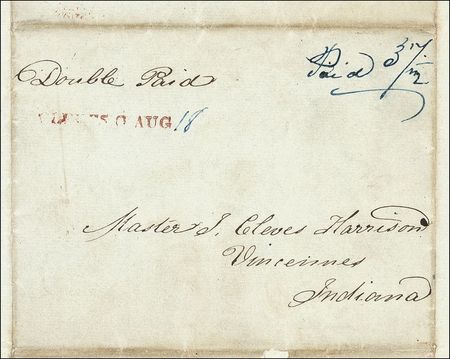 Paid 37 1/2
Double Paid
CLEVES O AUG 18
Master J. Cleves Harrison
Vincennes
Indiana